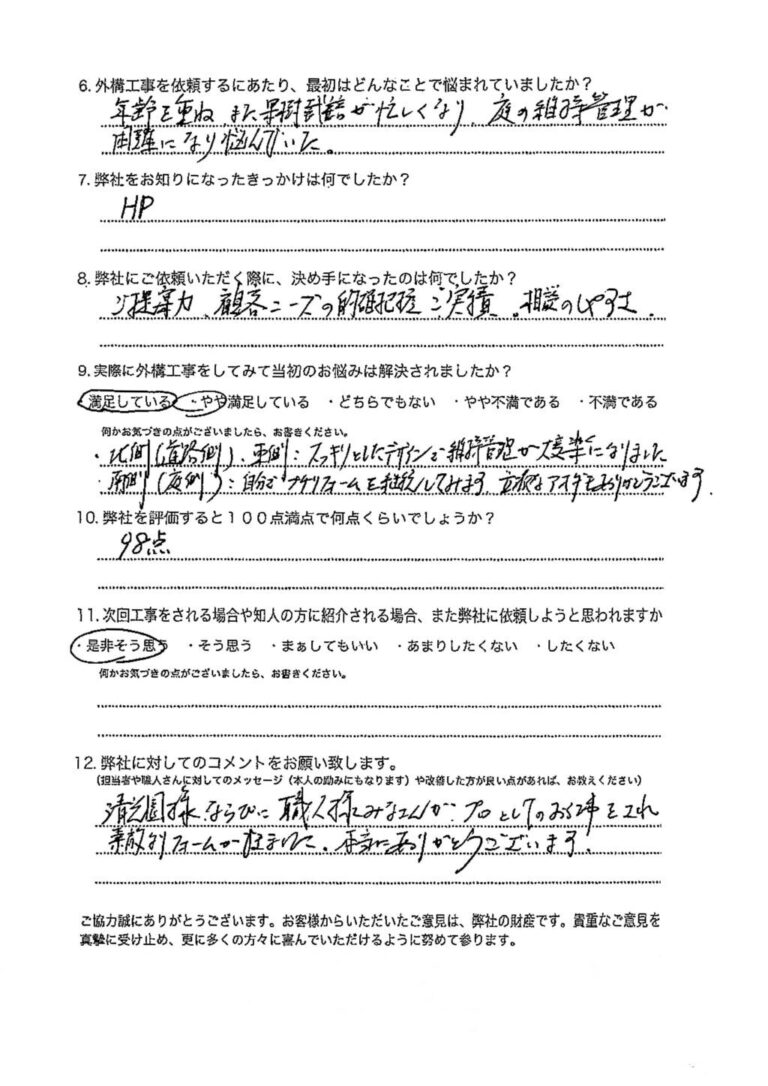 6. 外構工事を依頼するにあたり、最初はどんなことで悩まれていましたか?
年齢を重ね、また果樹栽培が忙しくなり、庭の維持管理が
困難になり悩んでいた。
7. 弊社をお知りになったきっかけは何でしたか?
HP
8. 弊社にご依頼いただく際に、決め手になったのは何でしたか?
ご提案力、顧客ニーズの的確把握、ご実績、相談のしやすさ。
9. 実際に外構工事をしてみて当初のお悩みは解決されましたか?
満足している ・やや満足している ・どちらでもない ・やや不満である ・不満である
何かお気づきの点がございましたら、お書きください。
・北側(道路側)、東側:スッキリとしたデザインで維持管理が大変楽になりました
・南側(庭側):自分でプチリフォームを継続してみます。立派なアイデアをありがとうございます。
10. 弊社を評価すると100点満点で何点くらいでしょうか?
98点
11. 次回工事をされる場合や知人の方に紹介される場合、また弊社に依頼しようと思われますか
・是非そう思う ・そう思う ・まぁしてもいい ・あまりしたくない ・したくない
何かお気づきの点がございましたら、お書きください。
12. 弊社に対してのコメントをお願い致します。
(担当者や職人さんに対してのメッセージ(本人の励みにもなります)や改善した方が良い点があれば、お教えください)
ならびに職人様みなさんがプロとしてのお仕事をされ
素敵なリフォームが
本当にありがとうございます。
ご協力誠にありがとうございます。お客様からいただいたご意見は、弊社の財産です。貴重なご意見を
真摯に受け止め、更に多くの方々に喜んでいただけるように努めて参ります。